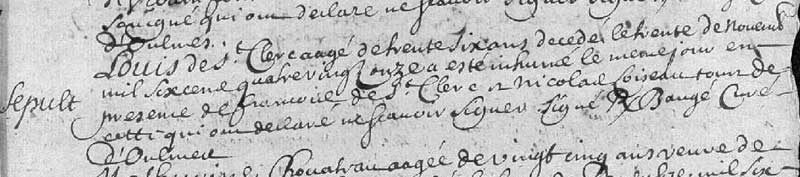 soubsigné qui ont declaré ne scavoir signer signé
d'Oulmes.
Louis de St Clerc aagé de trente six ans decedé le trente de Novemb
mil six cent quatre vingt onze a este inhumé le mesme jour en
sepult
presence de francois de St Clerc et Nicolas Loiseau tous de
cette qui ont declaré ne scavoir signer signé R Baugé Curé
d'Oulmes
aagée de vingt cinq ans veuve de
mil six